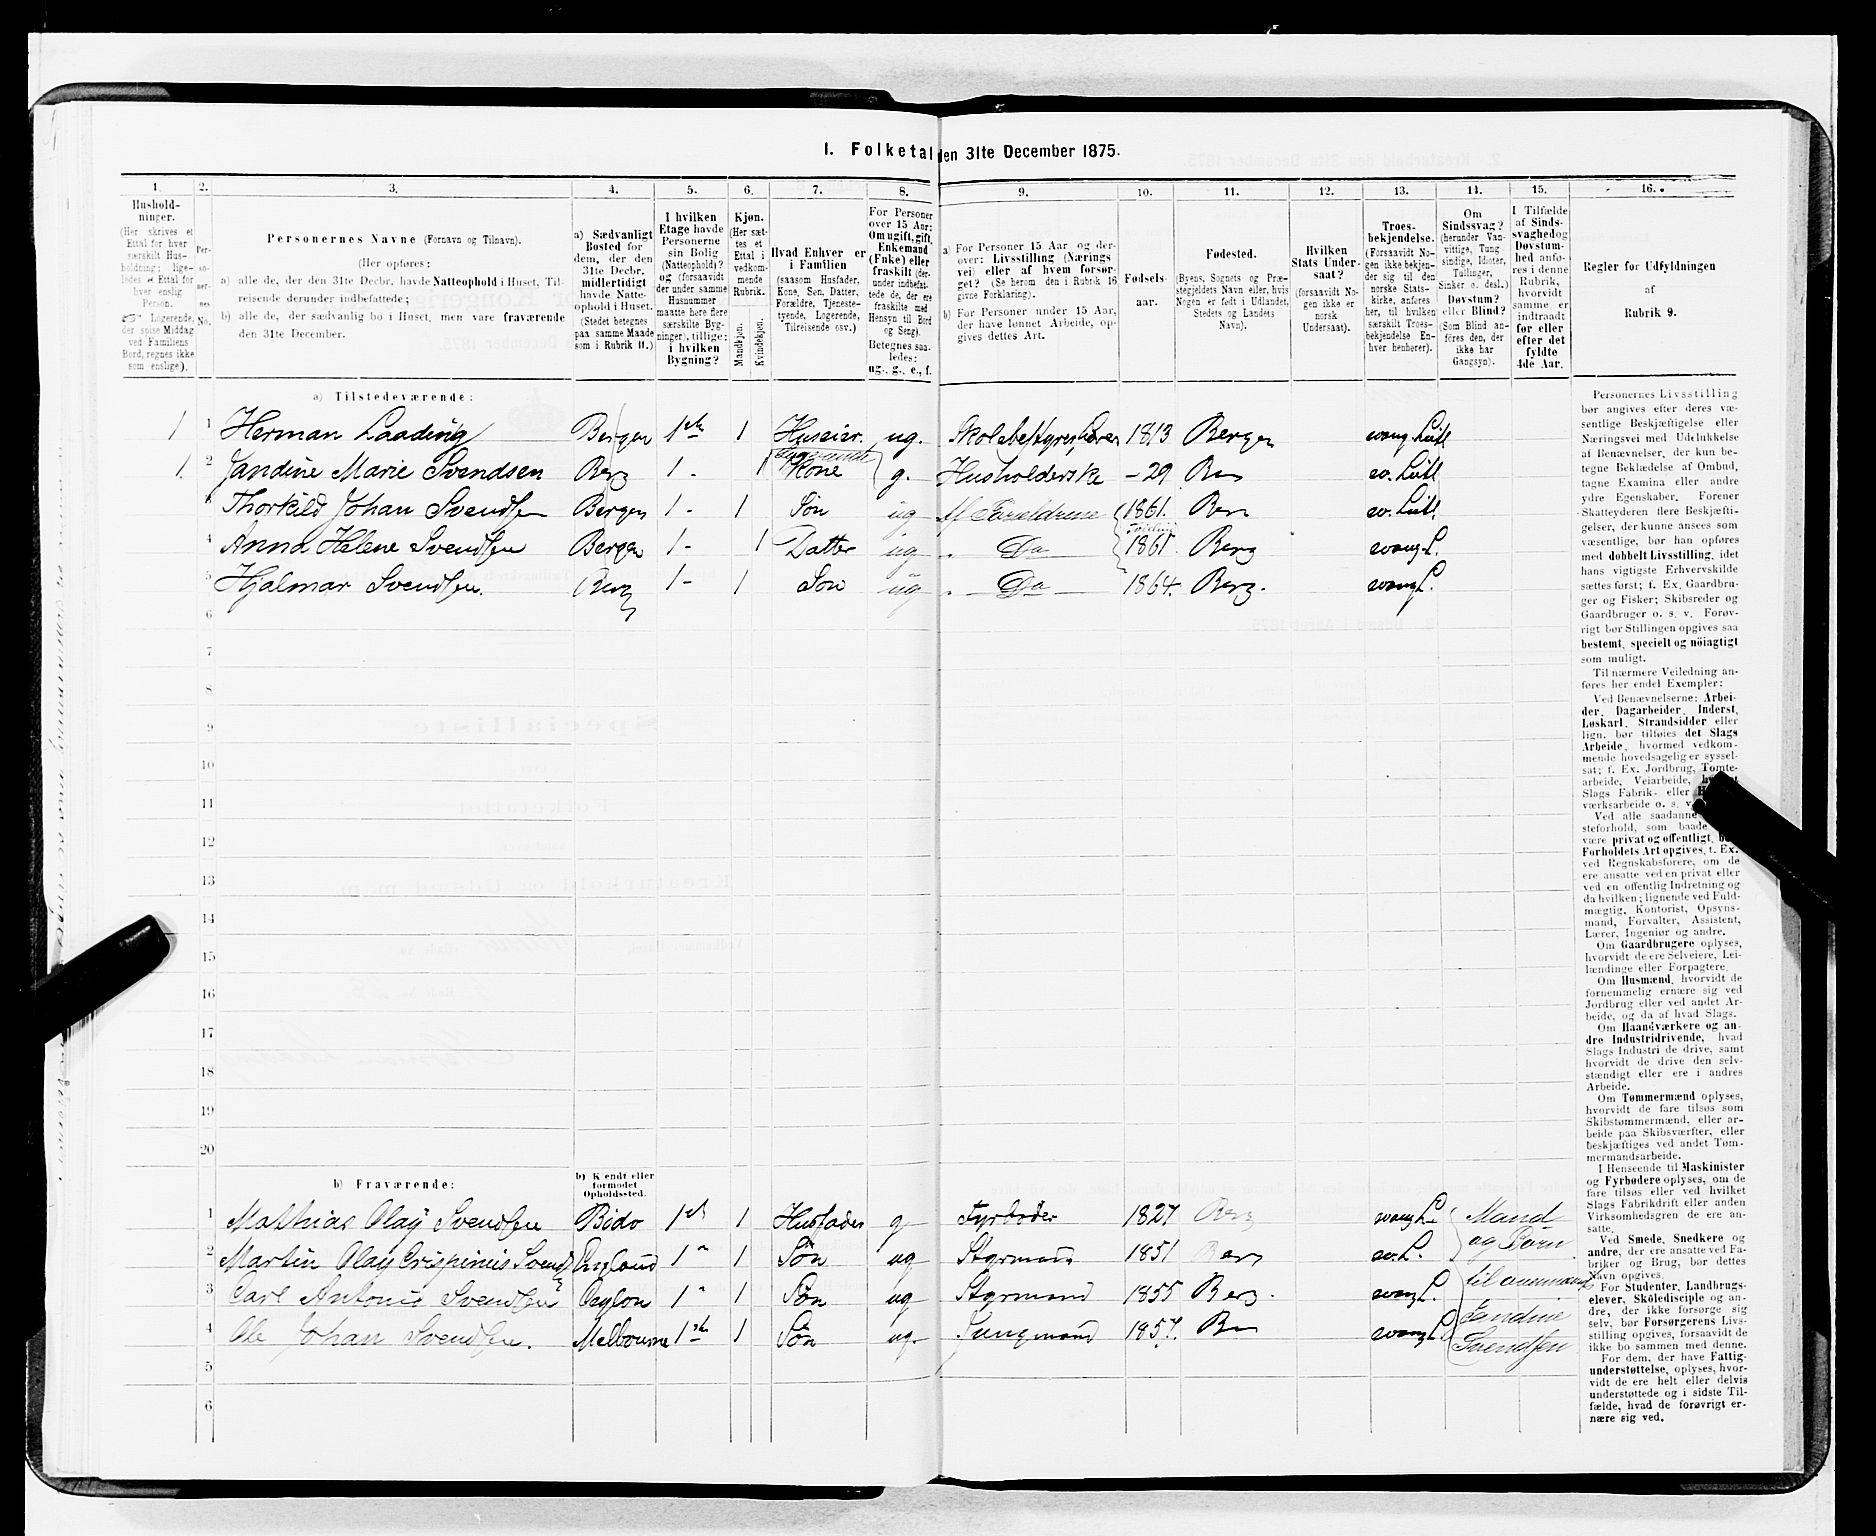 I. Folketal den 31te December 1875.
1. 2. 3. 4. 5. 6. 7. 8. 9. 10. 11. 12. 13. 14. 15. 16.
Hushold-
ninger.
(Her skrives et
Ettal for hver
særskilt Hus-
holdning; lige-
ledes et Ettal for
hver enslig
Person.
Logerende,
der spise Middag
ved Familiens
Bord, regnes ikke
som enslige).
Per-
so-
ner-
nes
No.
Personernes Navne (Fornavn og Tilnavn).
(Her opføres:
a) alle de, der den 31te Decbr. havde Natteophold i Huset, Til-
reisende derunder indbefattede;
b) alle de, der sædvanlig bo i Huset, men vare fraværende
den 31te December.
a) Sædvanligt
Bosted for
dem, der den
31te Decbr.
midlertidigt
havde Natte-
ophold i Huset.
(Stedet betegnes
paa samme Maade
som i Rubrik 11.)
I hvilken
Etage havde
Personerne
sin Bolig
(Natteophold)?
og (forsaavidt
der under samme
Husnummer
maatte høre flere
særskilte Byg-
ninger), tillige:
i hvilken
Bygning?
Kjøn.
(Her sæt-
tes et
Ettal i
vedkom-
mende
Rubrik.
Mandkjøn.
Kvindekjøn.
Hvad Enhver er
i Familien
(saasom Husfader,
Kone, Søn, Datter,
Forældre, Tjeneste-
tyende, Logerende,
Tilreisende osv.)
For Personer
over 15 Aar:
Om ugift, gift,
Enkemand
(Enke) eller
fraskilt (der-
under indbefat-
tede de, der ere
fraskilte med
Hensyn til Bord
og Seng).
Betegnes saa-
ledes:
ug., g., e., f.
a) For Personer 15 Aar og der-
over: Livsstilling (Nærings
vei) eller af hvem forsør-
get? (Se herom den i Rubrik 16
givne Forklaring).
b) For Personer under 15 Aar,
der have lønnet Arbeide, op-
gives dettes Art.
Fødsels-
aar.
Fødested.
(Byens, Sognets og Præ-
stegjeldets Navn eller, hvis
Nogen er født i Udlandet,
Stedets og Landets
Navn).
Hvilken
Stats Under-
saat?
(forsaavidt No-
gen ikke er
norsk
Undersaat).
Troes-
bekjendelse.
(Forsaavidt No-
gen ikke bekjen-
der sig til den
norske Stats-
kirke, anføres
her, til hvilken
særskilt Troes-
bekjendelse En-
hver henhører).
Om
Sindssvag?
(herunder Van-
vittige, Tung
sindige, Idioter,
Tullinger,
Sinker o. desl.)
Døvstum?
eller Blind?
(Som Blind an-
føres den, der
ikke har
Gangsyn).
I Tilfælde
af Sinds-
svaghed og
Døvstum-
hed anfø-
res i denne
Rubrik,
hvorvidt
samme er
indtraadt
før eller
efter det
fyldte
4de Aar.
Regler for Udfyldningen
af
Rubrik 9.
a) Tilstedeværende:
1 1 Herman Laading Bergen 1ste 1 Huseier ug. 1813 Bergen
1. 2 Jandine Marie Svendsen Berg 1 - 1 Kone g. Husholderske - 29
Thorkild Johan Svendsen Bergen 1 - 1 Søn ug Af Foreldrene 1861
4 Anna Helene Svendsen Bergen 1 - 1 Datter ug " Do 1861 Berg
5 Hjalmar Svendsen. 1 - 1 Søn ug " Do 1864. Berg.
6
7
8
9
10
11
12
13
14
15
16
17
18
19
20
b) Fraværende:
b) Kendt eller
formodet
Opholdssted.
1 Mathias Olay Svendsen Bodo 1st 1 Husfader g Fyrbøder 1827 Berg Mand
2 Martin Olay Crispinius Svends England 1 " 1 Søn ug Styrmand 1851 og Børn
3 Carl Antonio Svendsen Ceylon 1 " 1 Søn ug Styrmand 1855 Berg. til
4 Ole Johan Svendsen. Melbourne 1ste 1 Søn ug. Jungmand 1857. Jandine
Svendsen
5
6
Personernes Livsstilling
bør angives efter deres væ-
sentlige Beskjæftigelse eller
Næringsvei med Udelukkelse
af Benævnelser, der kun be-
tegne Beklædelse af Ombud,
tagne Examina eller andre
ydre Egenskaber. Forener
Skatteyderen flere Beskjæfti-
gelser, der kunne ansees som
væsentlige, bør han opføres
med dobbelt Livsstilling, idet
hans vigtigste Erhvervskilde
sættes først; f. Ex. Gaardbru-
ger og Fisker; Skibsreder og
Gaardbruger o. s. v. Forøv-
rigt bør Stillingen opgives saa
bestemt, specielt og nöiagtigt
som muligt.
Til nærmere Veiledning an-
føres her endel Exempler:
Ved Benævnelserne: Arbei-
der, Dagarbeider, Inderst,
Løskarl, Strandsidder eller
lign. bør tilføies det Slags
Arbeide, hvormed vedkom-
mende hovedsagelig er syssel-
sat; f. Ex. Jordbrug, Tomte-
arbeide, Veiarbeide,
Slags Fabrik- eller
værksarbeide o. s. v.
Ved alle saadanne
steforhold, som baade
være privat og offentligt,
Forholdets Art opgives, t. Ex.
ved Regnskabsførere, om de
ere ansatte ved en privat eller
ved en offentlig Indretning og
da hvilken; lignende ved Fuld-
mægtig, Kontorist, Opsyns-
mand, Forvalter, Assistent,
Lærer, Ingeniør og andre.
Om Gaardbrugere oplyses,
hvorvidt de ere Selveiere, Lei-
lændinge eller Forpagtere.
Om Husmænd, hvorvidt de
fornemmelig ernære sig ved
Jordbrug eller ved andet Ar-
beide, og da af hvad Slags.
Om Haandværkere og an-
dre Industridrivende, hvad
Slags Industri de drive, samt
hvorvidt de drive den selv-
stændigt eller ere i andres
Arbeide.
Om Tømmermænd oplyses,
hvorvidt de fare tilsøs som
Skibstømmermænd, eller ar-
beide paa Skibsværfter, eller
beskjæftiges ved andet Tøm-
mermandsarbeide.
I Henseende til Maskinister
og Fyrbødere oplyses, om de
fare tilsøs eller ved hvilket
Slags Fabrikdrift eller anden
Virksomhedsgren de ere an-
satte.
Ved Smede, Snedkere og
andre, der ere ansatte ved Fa-
briker og Brug, bør dettes
Navn opgives.
For Studenter, Landbrugs-
elever, Skóledisciple og an-
dre, der ikke forsørge sig
selv, bør Forsørgerens Livs-
stilling opgives, forsaavidt de
ikke bo sammen med denne.
For dem, der have Fattig-
understøttelse, oplyses, hvor-
vidt de ere helt eller delvis
understøttede og i sidste Til-
fælde, hvad de forøvrigt er-
nære sig ved.